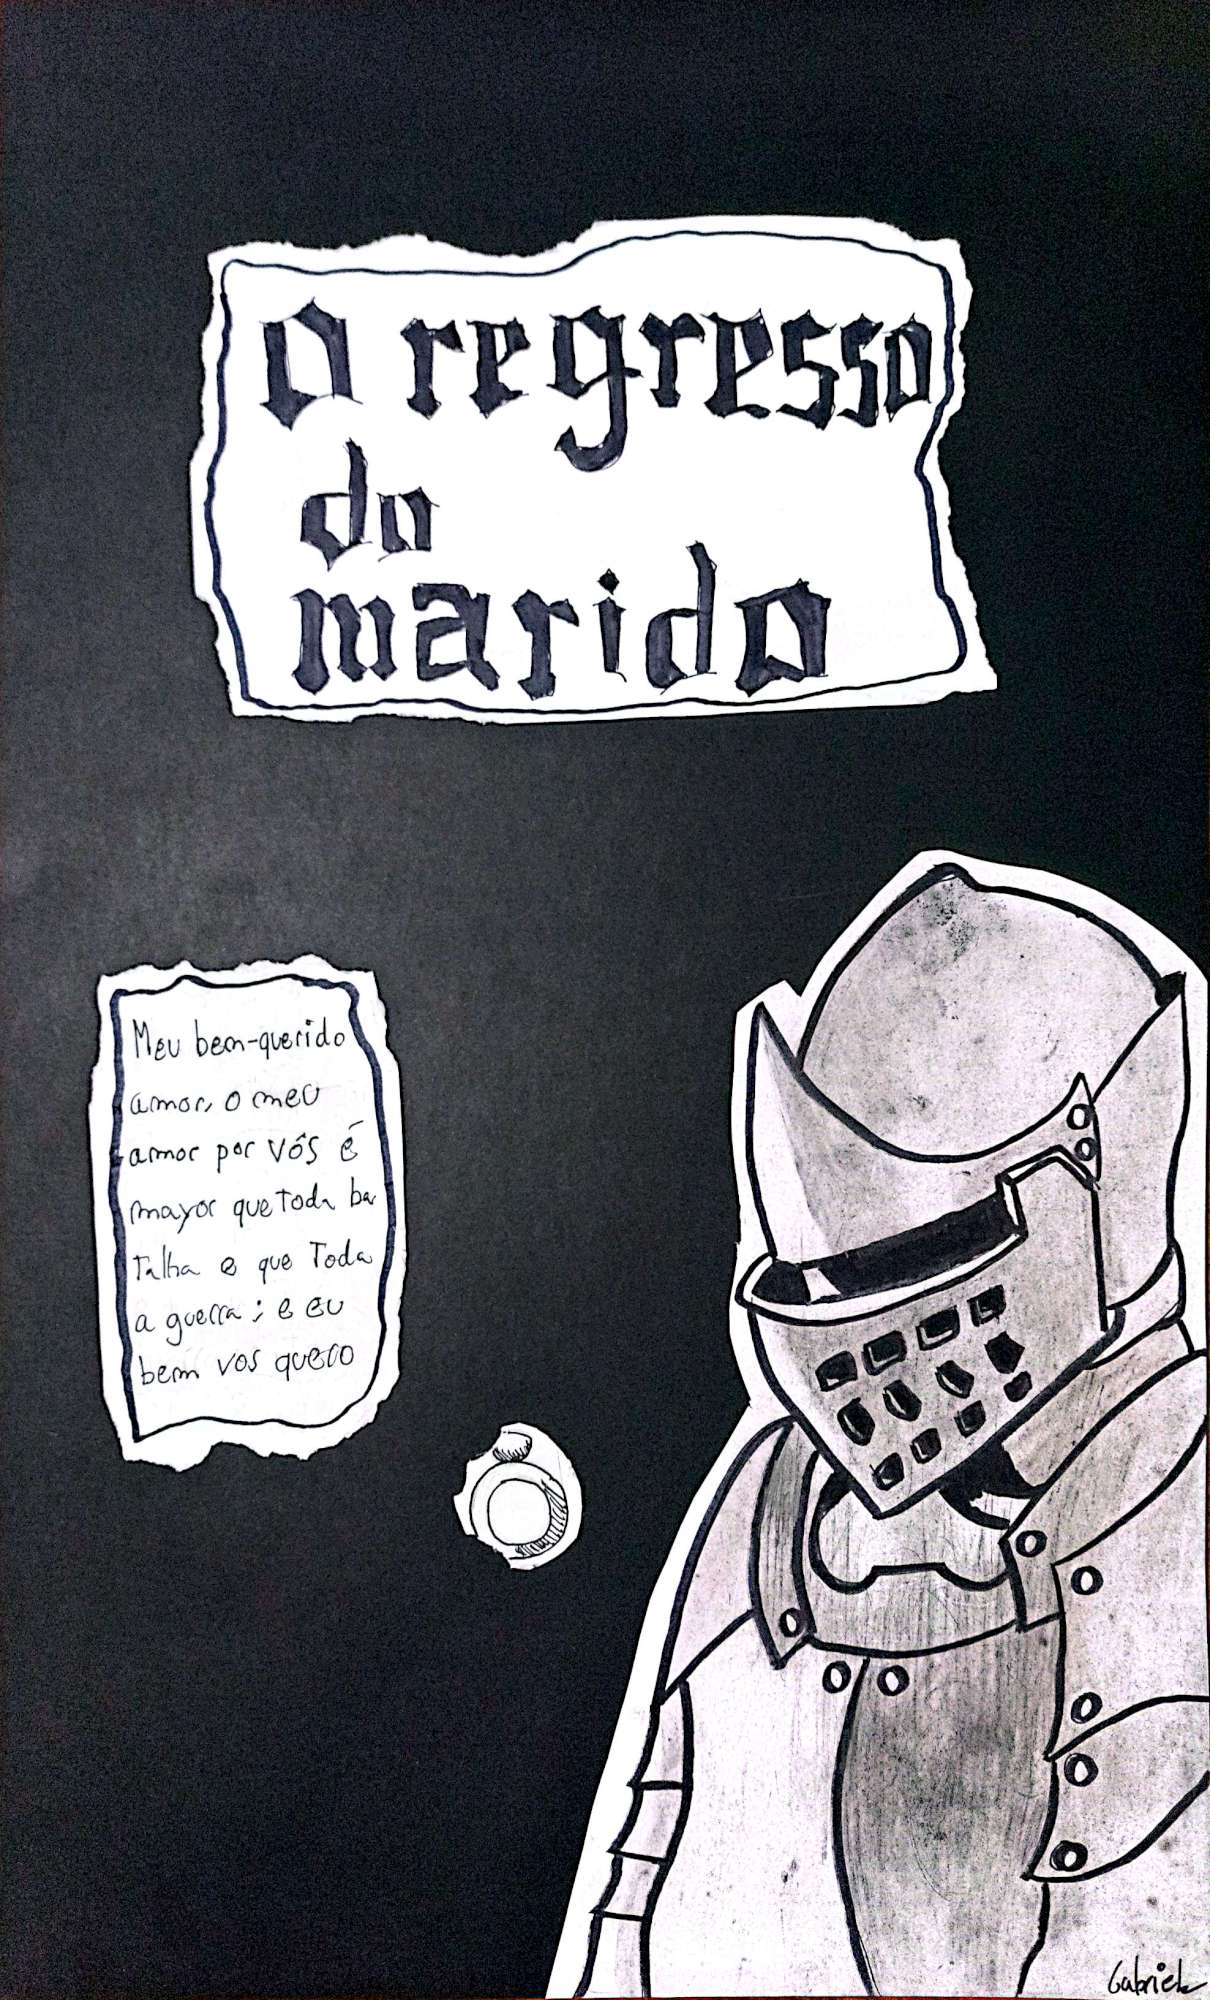 o regresso
do
marido
Meu bem-querido
amor, o meu
amor por vós é
mayor que toda ba
talha e que Toda
a guerra; e eu
bem vos quero
Gabriel